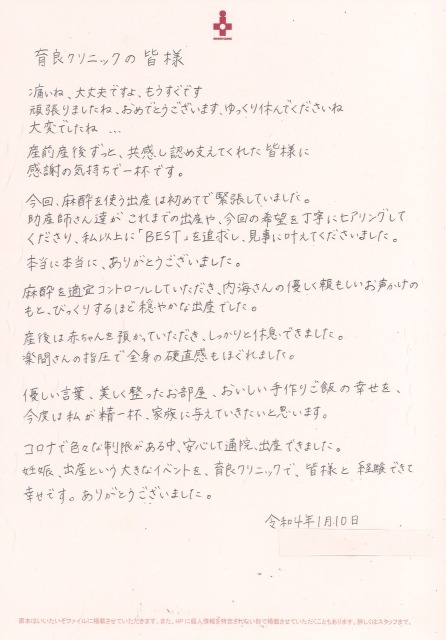 育良クリニックの皆様
痛いね、大丈夫ですよ、もうすぐです
頑張りましたね、おめでとうございます、ゆっくり休んでくださいね
大変でしたね …
産前産後ずっと、共感し認め支えてくれた皆様に
感謝の気持ちで一杯です。
今回、麻酔を使う出産は初めてで緊張していました。
助産師さん達がこれまでの出産や、今回の希望を丁寧にヒアリングして
くださり、私以上に「BEST」を追求し、見事に叶えてくださいました。
本当に本当に、ありがとうございました。
麻酔を適宜コントロールしていただき、内海さんの優しく頼もしいお声かけの
もと、びっくりするほど穏やかな出産でした。
産後は赤ちゃんを預かっていただき、しっかりと休息できました。
楽間さんの指圧で全身の硬直感もほぐれました。
優しい言葉、美しく整ったお部屋、おいしい手作りご飯の幸せを、
今度は私が精一杯、家族に与えていきたいと思います。
コロナで色々な制限がある中、安心して通院、出産できました。
妊娠、出産という大きなイベントを、育良クリニックで、皆様と経験できて
幸せです。ありがとうございました。
令和4年1月10日
原本はいいたいぞファイルに掲載させていただきます。また、HPに個人情報を特定されない形で掲載させていただくこともあります。詳しくはスタッフまで。